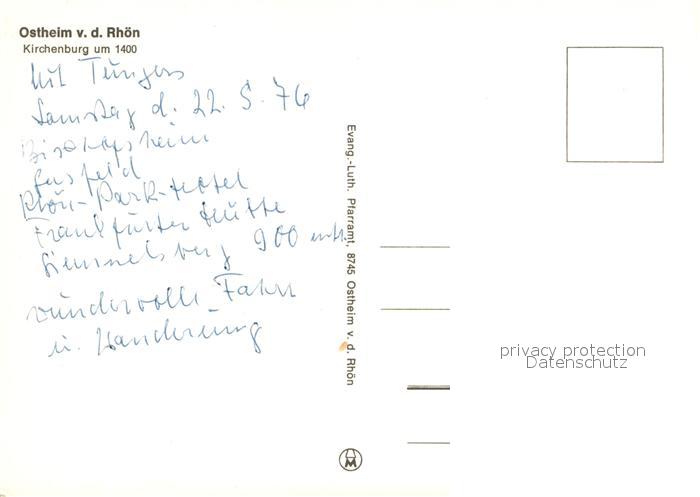 Ostheim v. d. Rhön
Kirchenburg um 1400
Mit Tüngers
Samstag d. 22. 5. 76
Bischofsheim
Rhön-Park-Hotel
Frankfurter Hütte
900 mtr.
wundervolle Fahrt
u. Wanderung
Evang.-Luth. Pfarramt, 8745 Ostheim v. d. Rhön
privacy protection
Datenschutz